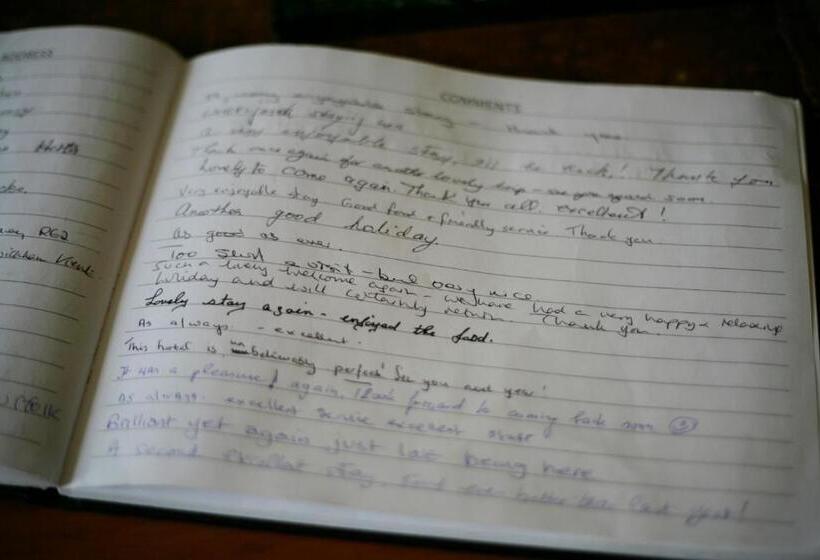 ADDRESS
RG2
COMMENTS
enjoyable Thank you
a very enjoyable stay, Thank you
Thank once again for another lovely - see you again soon
Lovely to come again. Thank you all. excellent!
Very enjoyable stay Good food & friendly service Thank you
Another good holiday
As good as ever.
Too short a visit - but very nice
Such a lovely welcome again - we have had a very happy & relaxing
holiday and will certainly return Thank you.
Lovely stay again - enjoyed the food.
As always - excellent.
This hotel is unbelievably perfect! See you next year!
It was a pleasure again. Look forward to coming back soon
As always. excellent service excellent
Brilliant yet again just love being here
A second excellent stay, even better than last year!